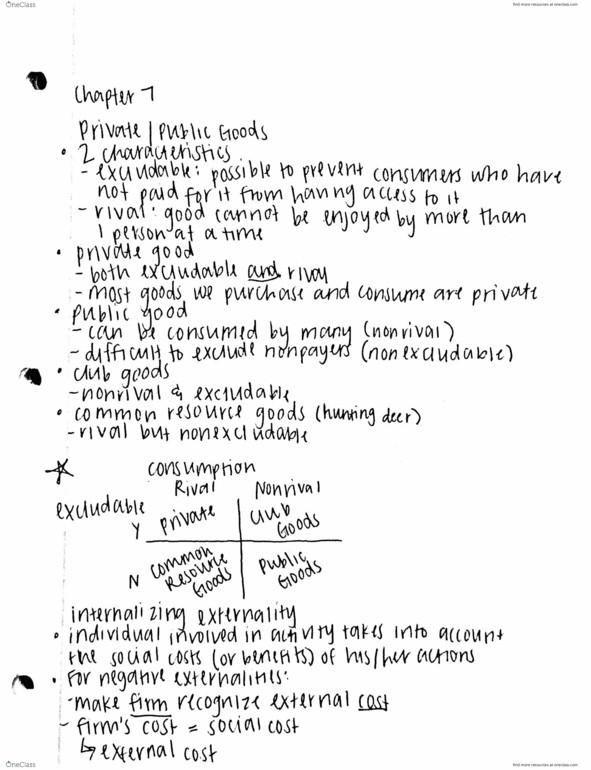 OneClass
find more resources at oneclass.com
Chapter 7
Private/Public Goods
• 2 characteristics
- excludable: possible to prevent consumers who have
not paid for it from having access to it
- rival: good cannot be enjoyed by more than
1 person at a time
• private good
- both excludable and rival
- most goods we purchase and consume are private
• public good
- can be consumed by many (nonrival)
- difficult to exclude nonpayers (nonexcludable)
• club goods
- nonrival & excludable
• common resource goods (hunting deer)
- rival but nonexcludable
consumption
Rival Nonrival
excludable
Y private club
Goods
N common
Resource
Goods
Public
Goods
internalizing externality
• individual involved in activity takes into account
the social costs (or benefits) of his/her actions
• For negative externalities:
- make firm recognize external cost
- firm's cost = social cost
↳ external cost
OneClass
find more resources at oneclass.com